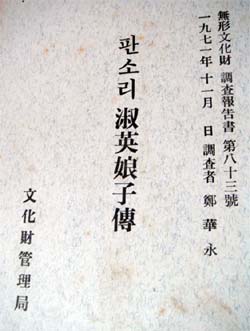 無形文化財 調査報告書 第八十三號
一九七一年 十一月 日 調査者 鄭華永
판소리 淑英娘子傳
文化財管理局